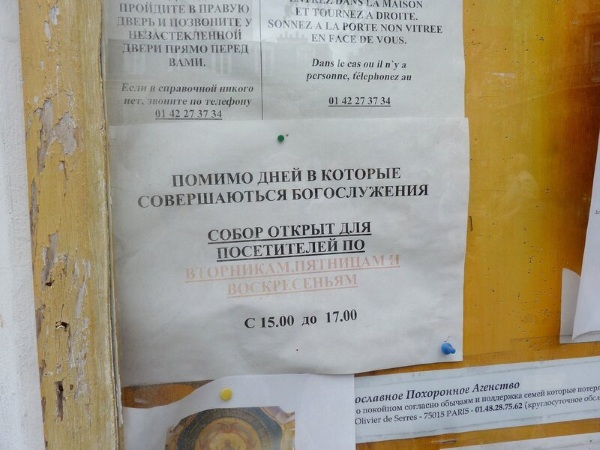 ПРОЙДИТЕ В ПРАВУЮ
ДВЕРЬ И ПОЗВОНИТЕ У
НЕЗАСТЕКЛЕННОЙ
ДВЕРИ ПРЯМО ПЕРЕД
ВАМИ.
Если в справочной никого
нет, звоните по телефону
01 42 27 37 34
ENTREZ DANS LA MAISON
ET TOURNEZ A DROITE.
SONNEZ A LA PORTE NON VITREE
EN FACE DE VOUS.
Dans le cas ou il n'y a
personne, félephonez au
01 42 27 37 34
ПОМИМО ДНЕЙ В КОТОРЫЕ
СОВЕРШАЮТЬСЯ БОГОСЛУЖЕНИЯ
СОБОР ОТКРЫТ ДЛЯ
ПОСЕТИТЕЛЕЙ ПО
ВТОРНИКАМ,ПЯТНИЦАМ И
ВОСКРЕСЕНЬЯМ
С 15.00 до 17.00
ославное Похоронное Агенство
о покойном согласно обычаям и поддержка семей которые потер
Olivier de Serres - 75015 PARIS - 01.48.28.75.62 (круглосуточное обсл